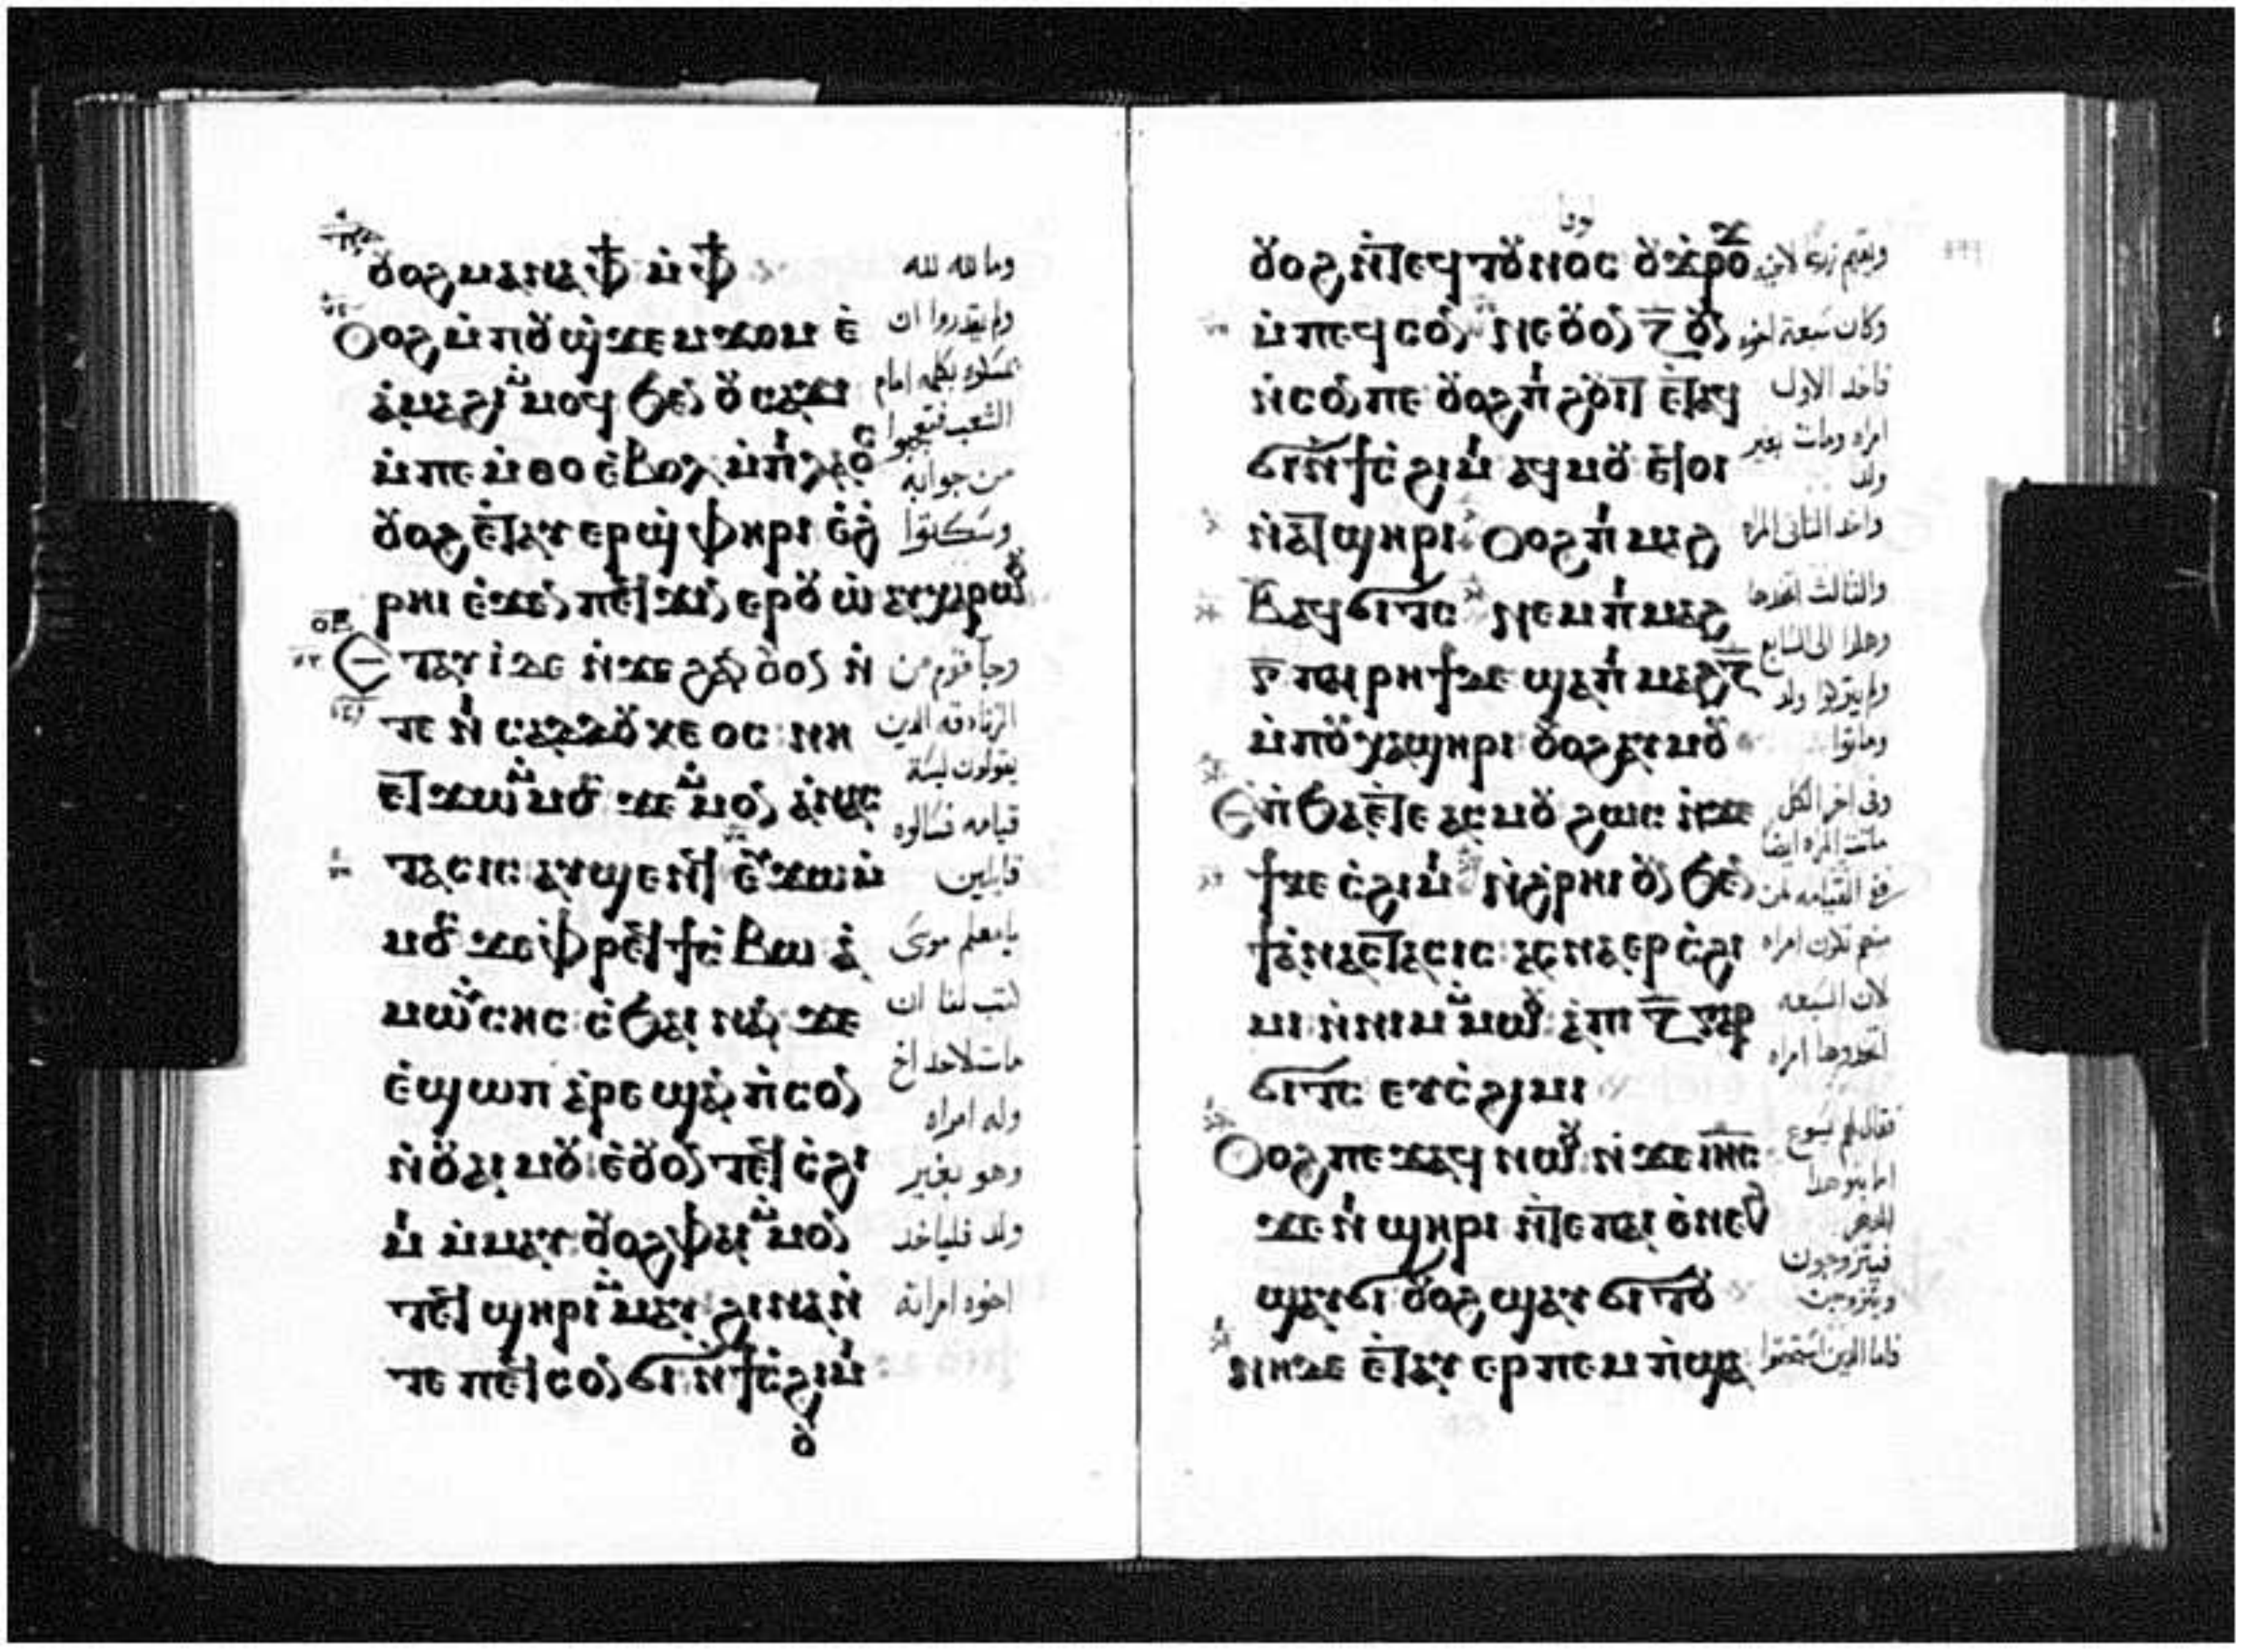 ⲟⲩⲟϩ ⲙⲁ ⲛⲁ ⲫϯ ⲙ̀ⲫϯ
ⲟⲩⲟϩ ⲙ̀ⲡⲟⲩϣϫⲉⲙϫⲟⲙ ⲉ̀
ⲁ̀ⲙⲁϩⲓ ⲙ̀ⲙⲟϥ ϧⲉⲛ ⲟⲩⲥⲁϫⲓ
ⲙ̀ⲡⲉⲙ̀ⲑⲟ ⲉ̀ⲃⲟⲗ ⲙ̀ⲡⲓⲗⲁⲟⲥ
ⲟⲩⲟϩ ⲉ̀ⲧⲁⲩⲉⲣϣ̀ⲫⲏⲣⲓ ⲉ̀ϩ̀
ⲣⲏⲓ ⲉ̀ϫⲉⲛ ⲡⲉϥϫⲓⲛⲉⲣⲟⲩⲱ̀ ⲁⲩⲭⲁⲣⲱⲟⲩ
ⲉⲧⲁⲩⲓ̀ ⲇⲉ ⲛ̀ϫⲉ ϩⲁⲛⲟⲩⲟⲛ ⲛ̀
ⲧⲉ ⲛⲓⲥⲁⲇⲇⲟⲩⲕⲉⲟⲥ ⲛⲏ
ⲉⲧϫⲱ ⲙ̀ⲙⲟⲥ ϫⲉ ⲙ̀ⲙⲟⲛ ⲁ̀ⲛⲁⲥ
ⲧⲁⲥⲓⲥ ⲁⲩϣⲉⲛϥ ⲉⲩϫⲱ ⲙ̀
ⲙⲟⲥ ϫⲉ ⲫⲣⲉϥϯⲥ̀ⲃⲱ ⲁ̀
ⲙⲱⲩⲥⲏⲥ ⲥ̀ϧⲁⲓ ⲛⲁⲛ ϫⲉ
ⲉ̀ϣⲱⲡ ⲁ̀ⲣⲉϣⲁⲛ ⲡ̀ⲥⲟⲛ
ⲛ̀ⲟⲩⲁⲓ ⲙⲟⲩ ⲉ̀ⲟⲩⲟⲛⲧⲉϥ ⲥ̀ϩⲓ
ⲙⲓ ⲙ̀ⲙⲁⲩ ⲟⲩⲟϩ ⲫⲁⲓ ⲙ̀ⲙⲟⲛ
ⲧⲉϥ ϣⲏⲣⲓ ⲙ̀ⲙⲁⲩ ϩⲓⲛⲁ ⲛ̀
ⲧⲉ ⲡⲉϥⲥⲟⲛ ϭⲓ ⲛ̀ϯⲥ̀ϩⲓⲙⲓ
ⲟ
وما لله لله
ولم يقدروا ان
يمسكوه بكلمه امام
الشعب فتعجبوا
من جوابه
وسكتوا
وجا قوم من
الزنادقه الذين
يقولون ليسة
قيامه فسالوه
قايلين
يامعلم موسى
كتب لنا ان
مات لاحد اخ
وله امراه
وهو بغير
ولد فلياخد
اخوه امراته
ⲟⲩⲟϩ ⲛ̀ⲧⲉϥⲧⲟⲩⲛⲟⲥ ⲟⲩϫⲣⲟϫ
ⲙ̀ⲡⲉϥⲥⲟⲛ ⲛⲉ ⲟⲩⲟⲛ ⲍ̅ ⲟⲩⲛ
ⲛ̀ⲥⲟⲛ ⲡⲉ ⲟⲩⲟϩ ⲡⲓϩⲟⲩⲓⲧ ⲉ̀ⲧⲁϥ
ϭⲓ ⲛ̀ϯⲥ̀ϩⲓⲙⲓ ⲁϥⲙⲟⲩ ⲉ̀ⲧⲟⲓ
ⲛ̀ⲁⲧϣⲏⲣⲓ ⲟⲩⲟϩ ⲡⲓⲙⲁϩ
ⲃ̅ ⲁϥϭⲓⲧⲥ ⲛⲉⲙ ⲡⲓⲙⲁϩ
ⲅ̅ ⲡⲁⲓⲣⲏϯ ⲇⲉ ϣⲁ ⲡⲓⲙⲁϩ ⲍ̅
ⲙ̀ⲡⲟⲩⲭⲁϣⲏⲣⲓ ⲟⲩⲟϩ ⲁⲩⲙⲟⲩ
ⲉ̀ⲡϧⲁⲉ̀ ⲇⲉ ⲁⲥⲙⲟⲩ ϩⲱⲥ ⲛ̀ϫⲉ
ϯⲕⲉⲥ̀ϩⲓⲙⲓ ⲛ̀ϩ̀ⲣⲏⲓ ⲟⲩⲛ ϧⲉⲛ
ϯⲁ̀ⲛⲁⲥⲧⲁⲥⲓⲥ ⲁⲥⲛⲁⲉⲣ ⲥ̀ϩⲓ
ⲙⲓ ⲛ̀ⲛⲓⲙ ⲙ̀ⲙⲱⲟⲩ ⲁ̀ⲡⲓ ⲍ̅ ⲅⲁⲣ
ϭⲓⲧⲥ ⲉⲩⲥ̀ϩⲓⲙⲓ
ⲟⲩⲟϩ ⲡⲉϫⲁϥ ⲛⲱⲟⲩ ⲛ̀ϫⲉ ⲓⲏⲥ
ϫⲉ ⲛⲓϣⲏⲣⲓ ⲛ̀ⲧⲉ ⲡⲁⲓⲉ̀ⲛⲉϩ
ϣⲁⲩϭⲓ ⲟⲩⲟϩ ϣⲁⲩϭⲓⲧⲟⲩ
ⲛⲏ ⲇⲉ ⲉ̀ⲧⲁⲩⲉⲣⲡⲉⲙⲡ̀ϣⲁ
لوقا
ويقيم زرعا لاخيه
وكان سبعة اخوه
فاخد الاول
امراه ومات بغير
ولد
واخد الثانى المراه
والثالث اتخدها
وهكدا الى السابع
ولم يتركوا ولد
وماتوا
وفى اخر الكل
ماتت المراه ايضا
ففى القيامه لمن
منهم تكون امراه
لان السبعه
اتخدوها امراه
فقال لهم يسوع
اما بنو هدا
الدهر
فيتزوجون
ويتزوجن
فاما الدين استحقوا